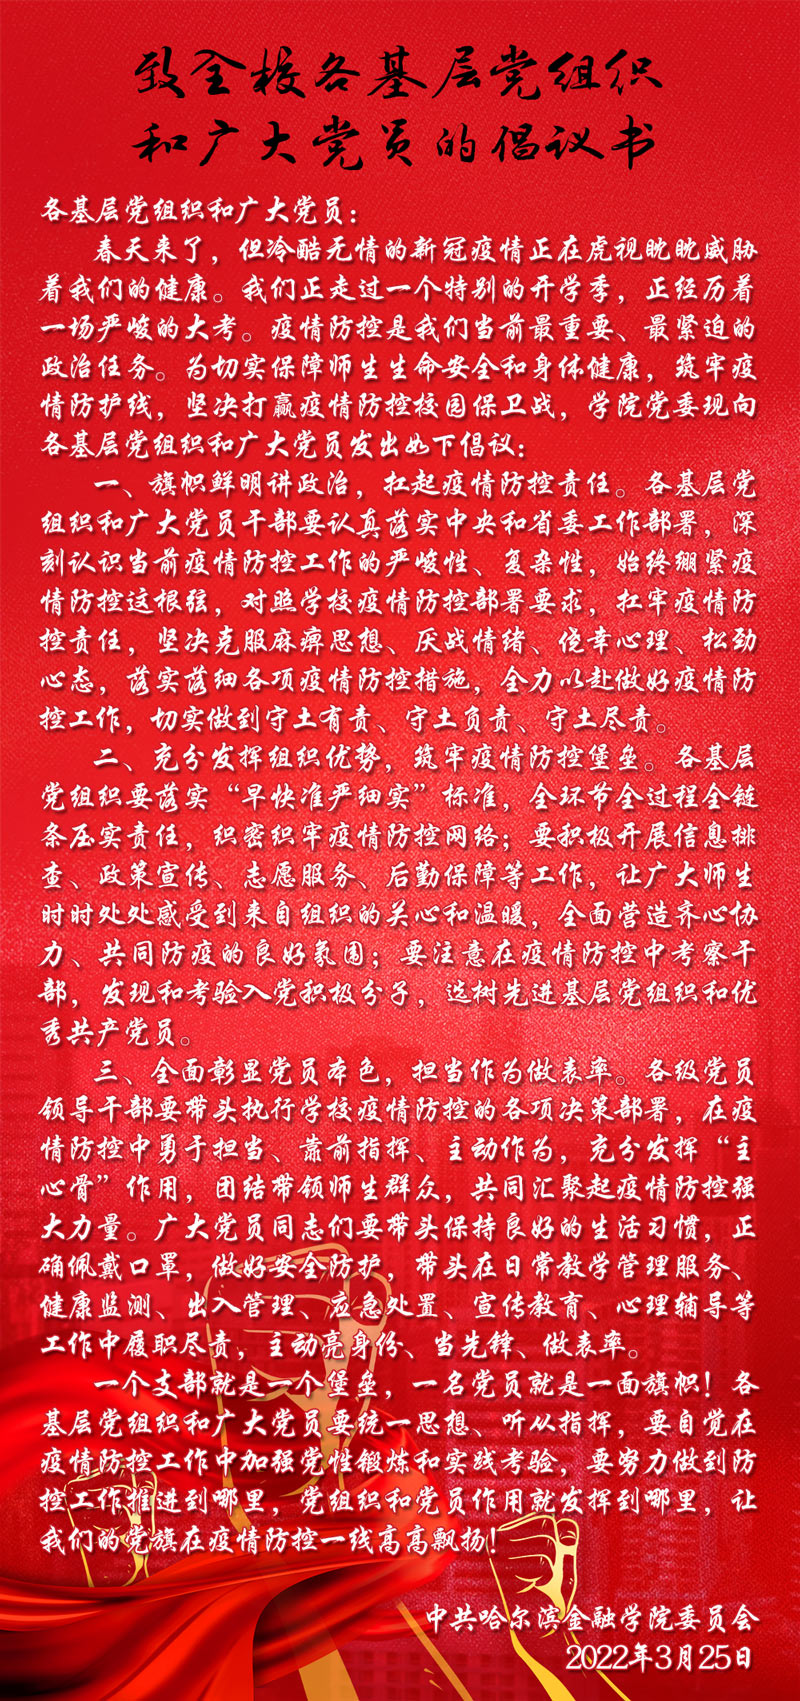 致全校各基层党组织
和广大党员的倡议书
各基层党组织和广大党员：
春天来了，但冷酷无情的新冠疫情正在虎视眈眈威胁
着我们的健康。我们正走过一个特别的开学季，正经历着
一场严峻的大考。疫情防控是我们当前最重要、最紧迫的
政治任务。为切实保障师生生命安全和身体健康，筑牢疫
情防护线，坚决打赢疫情防控校园保卫战，学院党委现向
各基层党组织和广大党员发出如下倡议：
一、旗帜鲜明讲政治，扛起疫情防控责任。各基层党
组织和广大党员干部要认真落实中央和省委工作部署，深
刻认识当前疫情防控工作的严峻性、复杂性，始终绷紧疫
情防控这根弦，对照学校疫情防控部署要求，扛牢疫情防
控责任，坚决克服麻痹思想、厌战情绪、侥幸心理、松劲
心态，落实落细各项疫情防控措施，全力以赴做好疫情防
控工作，切实做到守土有责、守土负责、守土尽责。
二、充分发挥组织优势，筑牢疫情防控堡垒。各基层
党组织要落实“早快准严细实”标准，全环节全过程全链
条压实责任，织密织牢疫情防控网络；要积极开展信息排
查、政策宣传、志愿服务、后勤保障等工作，让广大师生
时时处处感受到来自组织的关心和温暖，全面营造齐心协
力、共同防疫的良好氛围；要注意在疫情防控中考察干
部，发现和考验入党积极分子，选树先进基层党组织和优
秀共产党员。
三、全面彰显党员本色，担当作为做表率。各级党员
领导干部要带头执行学校疫情防控的各项决策部署，在疫
情防控中勇于担当、靠前指挥、主动作为，充分发挥“主
心骨”作用，团结带领师生群众，共同汇聚起疫情防控强
大力量。广大党员同志们要带头保持良好的生活习惯，正
确佩戴口罩，做好安全防护，带头在日常教学管理服务、
健康监测、出入管理、应急处置、宣传教育、心理辅导等
工作中履职尽责，主动亮身份、当先锋、做表率。
一个支部就是一个堡垒，一名党员就是一面旗帜！各
基层党组织和广大党员要统一思想、听从指挥，要自觉在
疫情防控工作中加强党性锻炼和实践考验，要努力做到防
控工作推进到哪里，党组织和党员作用就发挥到哪里，让
我们的党旗在疫情防控一线高高飘扬！
中共哈尔滨金融学院委员会
2022年3月25日